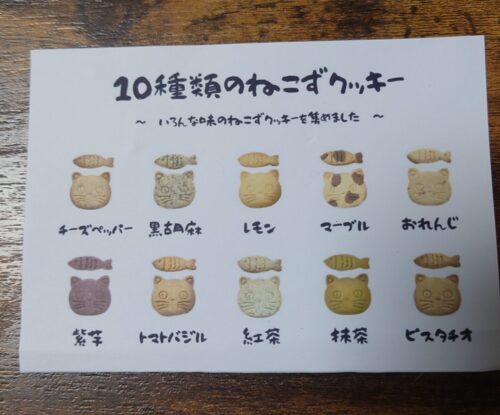 10種類のねこずクッキー
～ いろんな味のねこずクッキーを集めました ～
チーズペッパー 黒胡麻 レモン マーブル おれんじ
紫芋 トマトバジル 紅茶 抹茶 ピスタチオ